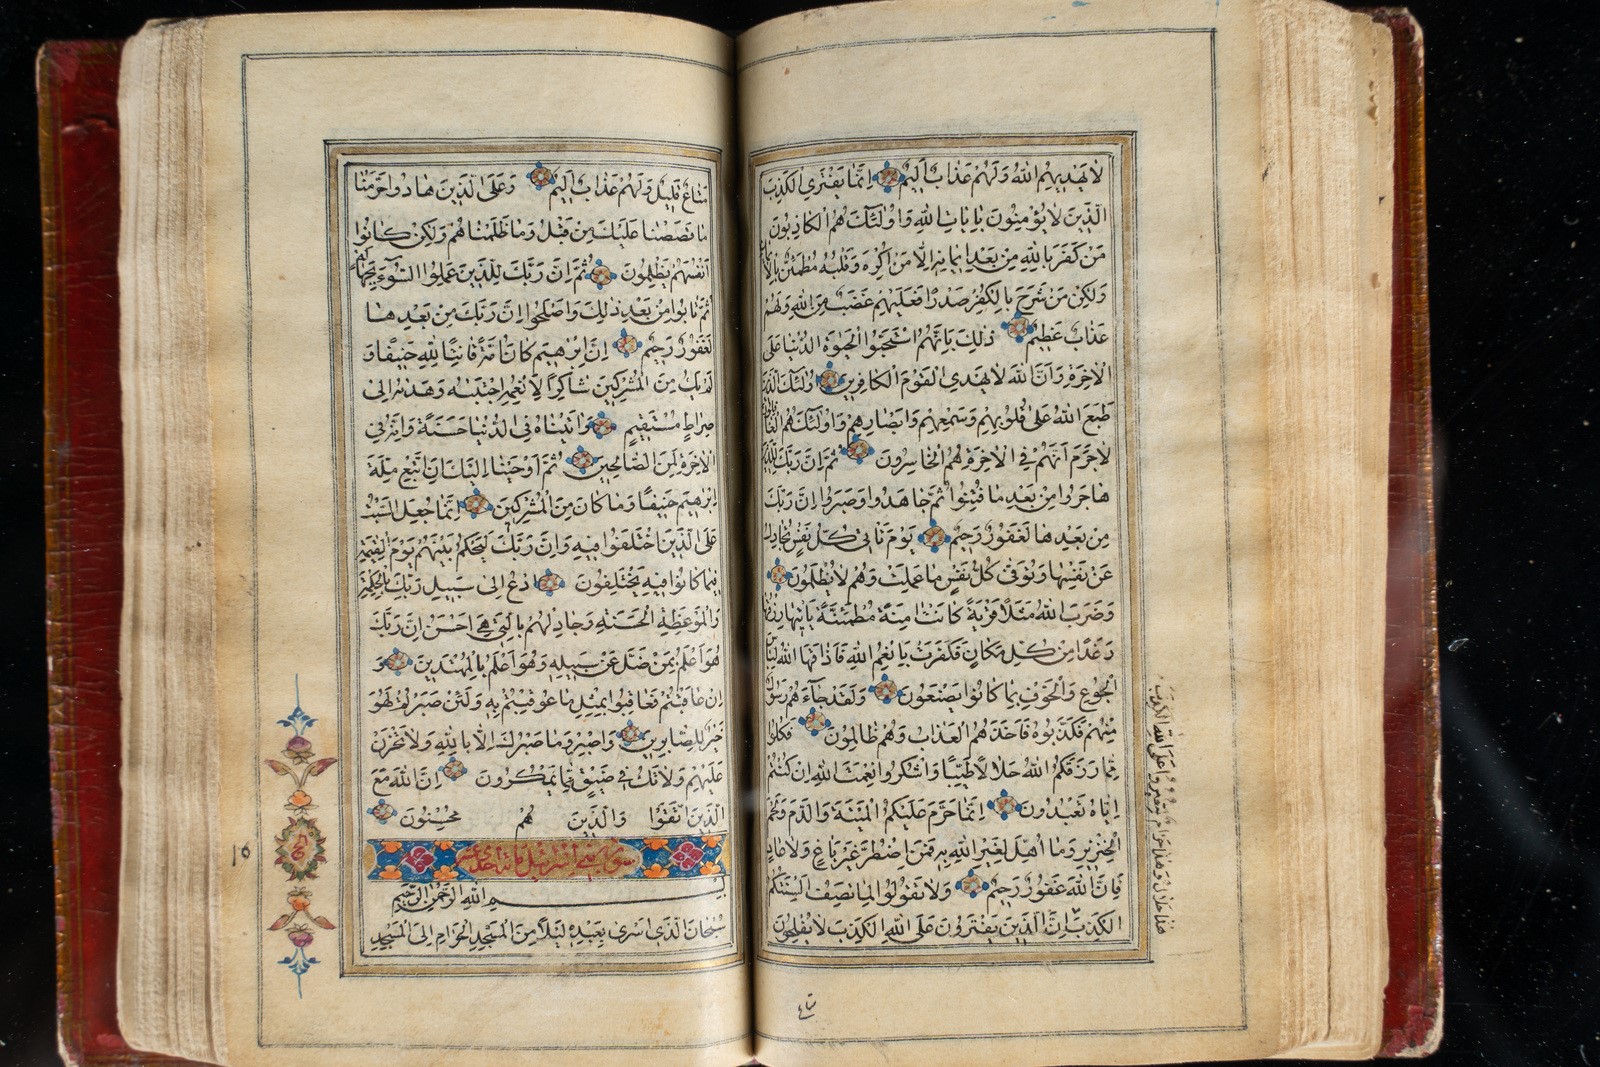 لا يَهْدِيهِمُ اللهُ وَلَهُمْ عَذَابٌ اَلِيمٌ اِنَّمَا يَفْتَرِي الْكَذِبَ
الَّذِينَ لا يُؤْمِنُونَ بِاٰيَاتِ اللهِ وَاُولٰئِكَ هُمُ الْكَاذِبُونَ
مَنْ كَفَرَ بِاللهِ مِنْ بَعْدِ اِيمَانِهِ اِلَّا مَنْ اُكْرِهَ وَقَلْبُهُ مُطْمَئِنٌّ بِالْاِيمَانِ
وَلٰكِنْ مَنْ شَرَحَ بِالْكُفْرِ صَدْرًا فَعَلَيْهِمْ غَضَبٌ مِنَ اللهِ وَلَهُمْ
عَذَابٌ عَظِيمٌ ذٰلِكَ بِاَنَّهُمُ اسْتَحَبُّوا الْحَيٰوةَ الدُّنْيَا عَلَى
الْاٰخِرَةِ وَاَنَّ اللهَ لا يَهْدِي الْقَوْمَ الْكَافِرِينَ اُولٰئِكَ الَّذِينَ
طَبَعَ اللهُ عَلٰى قُلُوبِهِمْ وَسَمْعِهِمْ وَاَبْصَارِهِمْ وَاُولٰئِكَ هُمُ الْغَافِلُونَ
لا جَرَمَ اَنَّهُمْ فِي الْاٰخِرَةِ هُمُ الْخَاسِرُونَ ثُمَّ اِنَّ رَبَّكَ لِلَّذِينَ
هَاجَرُوا مِنْ بَعْدِ مَا فُتِنُوا ثُمَّ جَاهَدُوا وَصَبَرُوا اِنَّ رَبَّكَ
مِنْ بَعْدِهَا لَغَفُورٌ رَحِيمٌ يَوْمَ تَاْتِي كُلُّ نَفْسٍ تُجَادِلُ
عَنْ نَفْسِهَا وَتُوَفّٰى كُلُّ نَفْسٍ مَا عَمِلَتْ وَهُمْ لا يُظْلَمُونَ
وَضَرَبَ اللهُ مَثَلًا قَرْيَةً كَانَتْ اٰمِنَةً مُطْمَئِنَّةً يَاْتِيهَا رِزْقُهَا
رَغَدًا مِنْ كُلِّ مَكَانٍ فَكَفَرَتْ بِاَنْعُمِ اللهِ فَاَذَاقَهَا اللهُ لِبَاسَ
الْجُوعِ وَالْخَوْفِ بِمَا كَانُوا يَصْنَعُونَ وَلَقَدْ جَآءَهُمْ رَسُولٌ
مِنْهُمْ فَكَذَّبُوهُ فَاَخَذَهُمُ الْعَذَابُ وَهُمْ ظَالِمُونَ فَكُلُوا
مِمَّا رَزَقَكُمُ اللهُ حَلَالًا طَيِّبًا وَاشْكُرُوا نِعْمَتَ اللهِ اِنْ كُنْتُمْ
اِيَّاهُ تَعْبُدُونَ اِنَّمَا حَرَّمَ عَلَيْكُمُ الْمَيْتَةَ وَالدَّمَ وَلَحْمَ
الْخِنْزِيرِ وَمَا اُهِلَّ لِغَيْرِ اللهِ بِهِ فَمَنِ اضْطُرَّ غَيْرَ بَاغٍ وَلا عَادٍ
فَاِنَّ اللهَ غَفُورٌ رَحِيمٌ وَلا تَقُولُوا لِمَا تَصِفُ اَلْسِنَتُكُمُ
الْكَذِبَ اِنَّ الَّذِينَ يَفْتَرُونَ عَلَى اللهِ الْكَذِبَ لا يُفْلِحُونَ
هٰذَا حَلَالٌ وَهٰذَا حَرَامٌ لِتَفْتَرُوا عَلَى اللهِ الْكَذِبَ
متاع
مَتَاعٌ قَلِيلٌ وَلَهُمْ عَذَابٌ اَلِيمٌ وَعَلَى الَّذِينَ هَادُوا حَرَّمْنَا
مَا قَصَصْنَا عَلَيْكَ مِنْ قَبْلُ وَمَا ظَلَمْنَاهُمْ وَلٰكِنْ كَانُوا
اَنْفُسَهُمْ يَظْلِمُونَ ثُمَّ اِنَّ رَبَّكَ لِلَّذِينَ عَمِلُوا السُّوٓءَ بِجَهَالَةٍ
ثُمَّ تَابُوا مِنْ بَعْدِ ذٰلِكَ وَاَصْلَحُوا اِنَّ رَبَّكَ مِنْ بَعْدِهَا
لَغَفُورٌ رَحِيمٌ اِنَّ اِبْرٰهِيمَ كَانَ اُمَّةً قَانِتًا لِلّٰهِ حَنِيفًا وَ
لَمْ يَكُ مِنَ الْمُشْرِكِينَ شَاكِرًا لِاَنْعُمِهِ اجْتَبٰيهُ وَهَدٰيهُ اِلٰى
صِرَاطٍ مُسْتَقِيمٍ وَاٰتَيْنَاهُ فِي الدُّنْيَا حَسَنَةً وَاِنَّهُ فِي
الْاٰخِرَةِ لَمِنَ الصَّالِحِينَ ثُمَّ اَوْحَيْنَا اِلَيْكَ اَنِ اتَّبِعْ مِلَّةَ
اِبْرٰهِيمَ حَنِيفًا وَمَا كَانَ مِنَ الْمُشْرِكِينَ اِنَّمَا جُعِلَ السَّبْتُ
عَلَى الَّذِينَ اخْتَلَفُوا فِيهِ وَاِنَّ رَبَّكَ لَيَحْكُمُ بَيْنَهُمْ يَوْمَ الْقِيٰمَةِ
فِيمَا كَانُوا فِيهِ يَخْتَلِفُونَ اُدْعُ اِلٰى سَبِيلِ رَبِّكَ بِالْحِكْمَةِ
وَالْمَوْعِظَةِ الْحَسَنَةِ وَجَادِلْهُمْ بِالَّتِي هِيَ اَحْسَنُ اِنَّ رَبَّكَ
هُوَ اَعْلَمُ بِمَنْ ضَلَّ عَنْ سَبِيلِهِ وَهُوَ اَعْلَمُ بِالْمُهْتَدِينَ وَ
اِنْ عَاقَبْتُمْ فَعَاقِبُوا بِمِثْلِ مَا عُوقِبْتُمْ بِهِ وَلَئِنْ صَبَرْتُمْ لَهُوَ
خَيْرٌ لِلصَّابِرِينَ وَاصْبِرْ وَمَا صَبْرُكَ اِلَّا بِاللهِ وَلا تَحْزَنْ
عَلَيْهِمْ وَلا تَكُ فِي ضَيْقٍ مِمَّا يَمْكُرُونَ اِنَّ اللهَ مَعَ
الَّذِينَ اتَّقَوْا وَالَّذِينَ هُمْ مُحْسِنُونَ
سورة بني اسرائيل مائة واحدى عشر
بِسْمِ اللهِ الرَّحْمٰنِ الرَّحِيمِ
سُبْحَانَ الَّذِي اَسْرٰى بِعَبْدِهِ لَيْلًا مِنَ الْمَسْجِدِ الْحَرَامِ اِلَى الْمَسْجِدِ
١٥